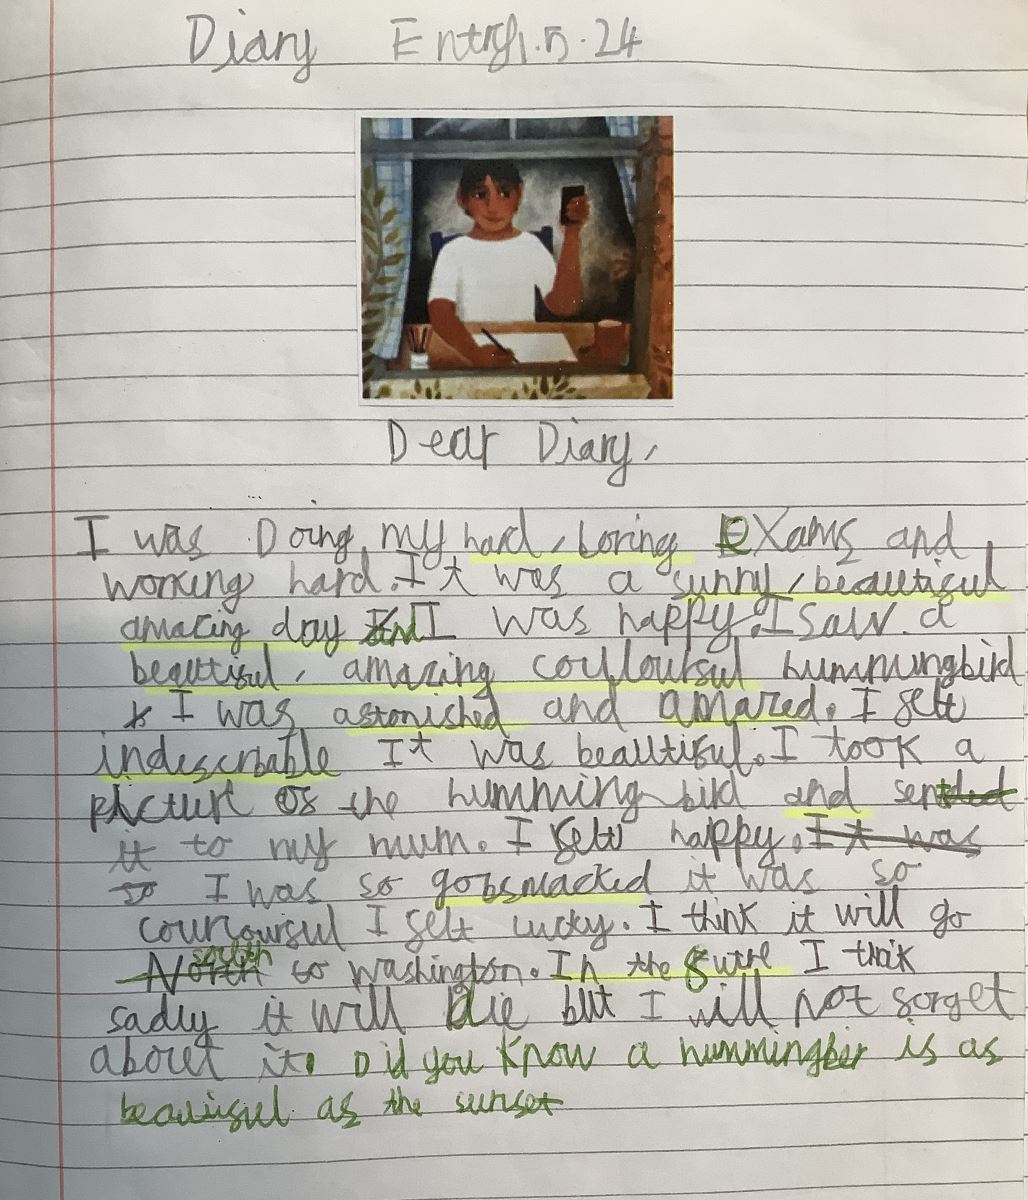 Diary Entry 1.5.24
Dear Diary,
I was Doing my hard, boring Exams and
working hard. It was a sunny, beautiful
amazing day I was happy. I saw a
beautiful, amazing coulloursul hummingbird
I was astonished and amazed. I felt
indescrbable It was beautiful. I took a
picture of the humming bird and sent
it to my mum. I felt happy. It was
so I was so gobsmacked it was so
I felt lucky. I think it will go
North south to Washington. In the I think
sadly it will die but I will not forget
about it. Did you know a hummingber is as
beautiful as the sunset